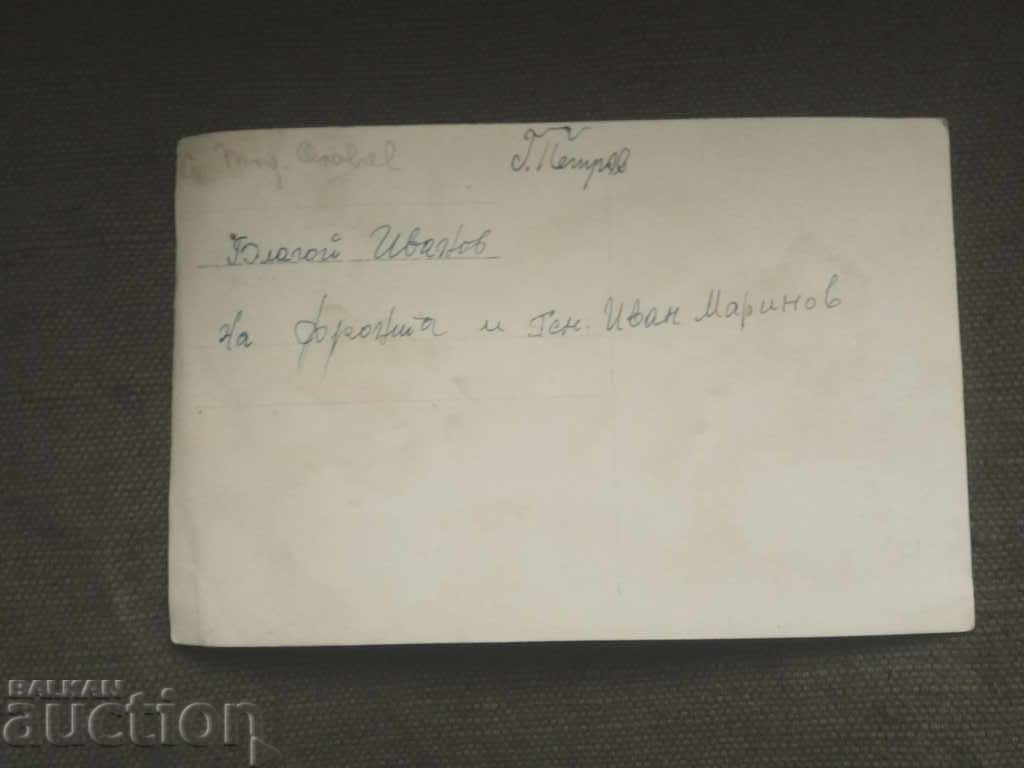 Г. Петров
Благой Иванов
на фронта и Ген. Иван Маринов
BALKAN
auction